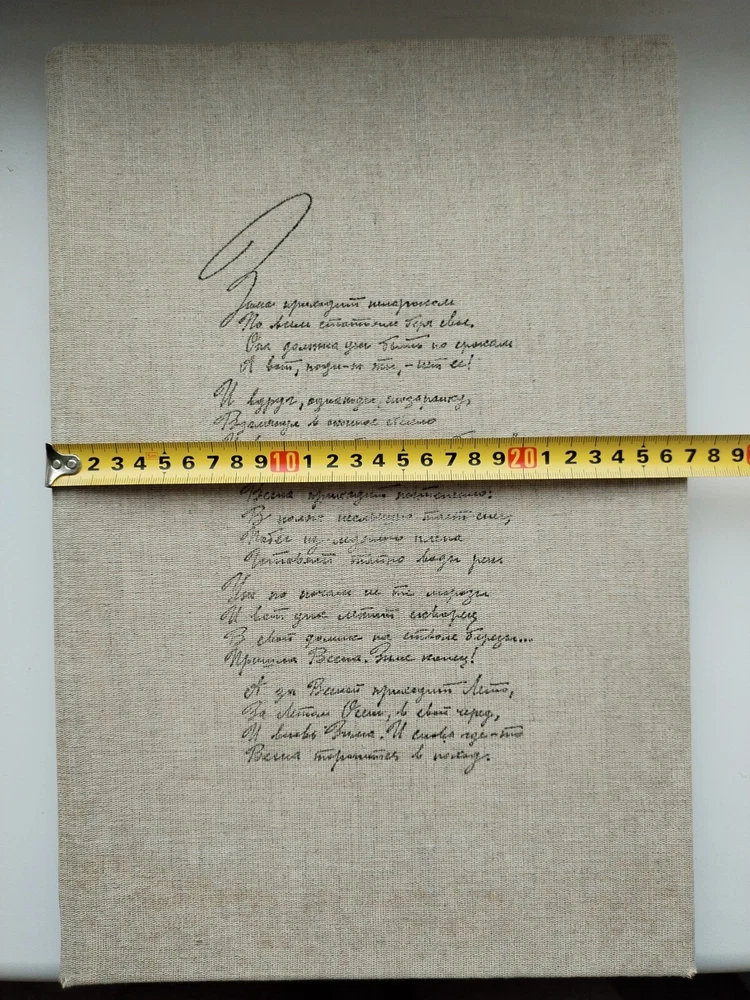 Зима приходит ненароком
По всем статьям беря свое.
Она должна уж быть по срокам
А вот, поди-ж ты, - нет ее!
И вдруг, однажды, спозаранку,
Взглянул в оконное стекло
2 3 4 5 6 7 8 9 10 1 2 3 4 5 6 7 8 9 20 1 2 3 4 5 6 7 8 9
Весна приходит постепенно:
В полях неслышно тает снег,
Побег из ледяного плена
Готовят тайно воды рек.
Уж по ночам не те морозы
И вот уже летит скворец
В свой домик на стволе березы...
Пришла Весна. Зиме конец!
А за Весной приходит Лето,
За Летом Осень, в свой черед,
И вновь Зима. И снова где-то
Весна торопится в поход.